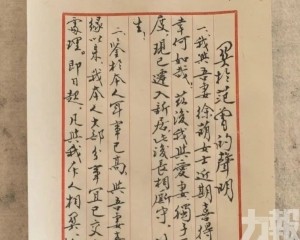 關於范曾的聲明
一、我與吾妻徐萌女士近期喜得
幸何如哉。茲後我與愛妻獨子
度，現已遷入新居，此後長相廝守，以
生。
二、鑒於本人年事已高，與吾妻
緣以來，我本人大部分事宜已交
處理。即日起，凡與我本人相關
力報